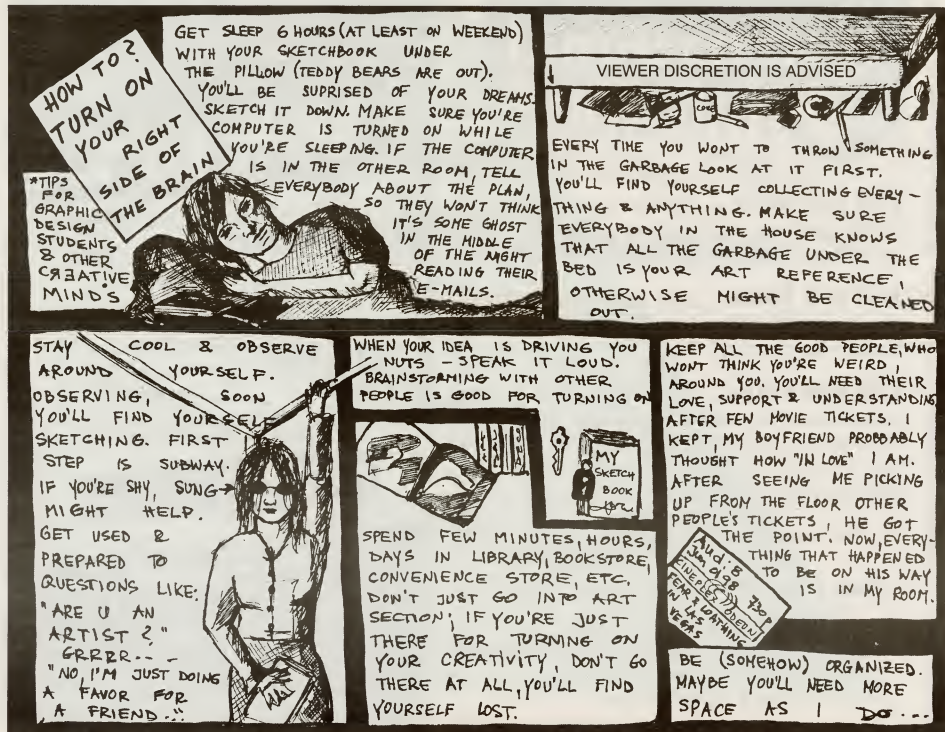 HOW TO?
TURN ON
YOUR
RIGHT
SIDE OF
THE BRAIN
*TIPS
FOR
GRAPHIC
DESIGN
STUDENTS
& OTHER
CЯEATIVE
MINDS
GET SLEEP 6 HOURS (AT LEAST ON WEEKEND)
WITH YOUR SKETCHBOOK UNDER
THE PILLOW (TEDDY BEARS ARE OUT).
YOU'LL BE SUPRISED OF YOUR DREAMS.
SKETCH IT DOWN. MAKE SURE YOU'RE
COMPUTER IS TURNED ON WHILE
YOU'RE SLEEPING. IF THE COMPUTER
IS IN THE OTHER ROOM, TELL
EVERYBODY ABOUT THE PLAN,
SO THEY WON'T THINK
IT'S SOME GHOST
IN THE MIDDLE
OF THE NIGHT
READING THEIR
E-MAILS.
VIEWER DISCRETION IS ADVISED
COKE
EVERY TIME YOU WONT TO THROW SOMETHING
IN THE GARBAGE LOOK AT IT FIRST.
YOU'LL FIND YOURSELF COLLECTING EVERY-
THING & ANYTHING. MAKE SURE
EVERYBODY IN THE HOUSE KNOWS
THAT ALL THE GARBAGE UNDER THE
BED IS YOUR ART REFERENCE,
OTHERWISE MIGHT BE CLEANED
OUT.
STAY COOL & OBSERVE
AROUND YOURSELF.
OBSERVING, SOON
YOU'LL FIND YOURSELF
SKETCHING. FIRST
STEP IS SUBWAY.
IF YOU'RE SHY, SUNG→
MIGHT HELP.
GET USED &
PREPARED TO
QUESTIONS LIKE:
"ARE U AN
ARTIST?"
GRRRR---
"NO, I'M JUST DOING
A FAVOR FOR
A FRIEND..."
WHEN YOUR IDEA IS DRIVING YOU
NUTS - SPEAK IT LOUD.
BRAINSTORMING WITH OTHER
PEOPLE IS GOOD FOR TURNING ON
MY
SKETCH
BOOK
SPEND FEW MINUTES, HOURS,
DAYS IN LIBRARY, BOOKSTORE,
CONVENIENCE STORE, ETC.
DON'T JUST GO INTO ART
SECTION; IF YOU'RE JUST
THERE FOR TURNING ON
YOUR CREATIVITY, DON'T GO
THERE AT ALL, YOU'LL FIND
YOURSELF LOST.
KEEP ALL THE GOOD PEOPLE, WHO
WONT THINK YOU'RE WEIRD,
AROUND YOU. YOU'LL NEED THEIR
LOVE, SUPPORT & UNDERSTANDING
AFTER FEN MOVIE TICKETS, I
KEPT, MY BOYFRIEND PROBDABLY
THOUGHT HOW "IN LOVE" I AM.
AFTER SEEING ME PICKING
UP FROM THE FLOOR OTHER
PEOPLE'S TICKETS, HE GOT
THE POINT. NOW, EVERY-
THING THAT HAPPENED
TO BE ON HIS WAY
IS IN MY ROOM.
Aud: 8
Jun 01 98 730P
CINEPLEX ODEON
FEAR & LOATHING
IN LAS
VEGAS
BE (SOMEHOW) ORGANIZED.
MAYBE YOU'LL NEED MORE
SPACE AS I DO...